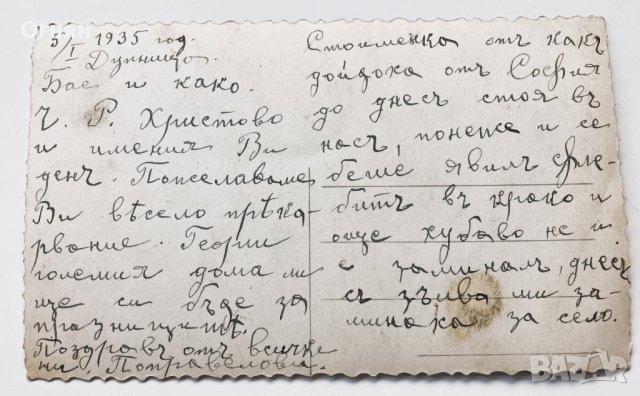 5/I 1935 год.
Дупница.
Бае и како.
Ч. Р. Христово
и имения Ви
денъ. Пожелаваме
Ви вѣсело прѣка-
рвание. Георги
големия дома ли
ще си бѫде за
празницитѣ.
Поздравъ отъ всички
ни.
Стоименка отъ какъ
дойдоха отъ София
до днесъ стоя въ
насъ, понеже и се
беше явилъ флѣ-
битъ въ крако и
още хубаво не и
е заминалъ, днесъ
съ зълва ми за-
минаха за село.
BAZAR